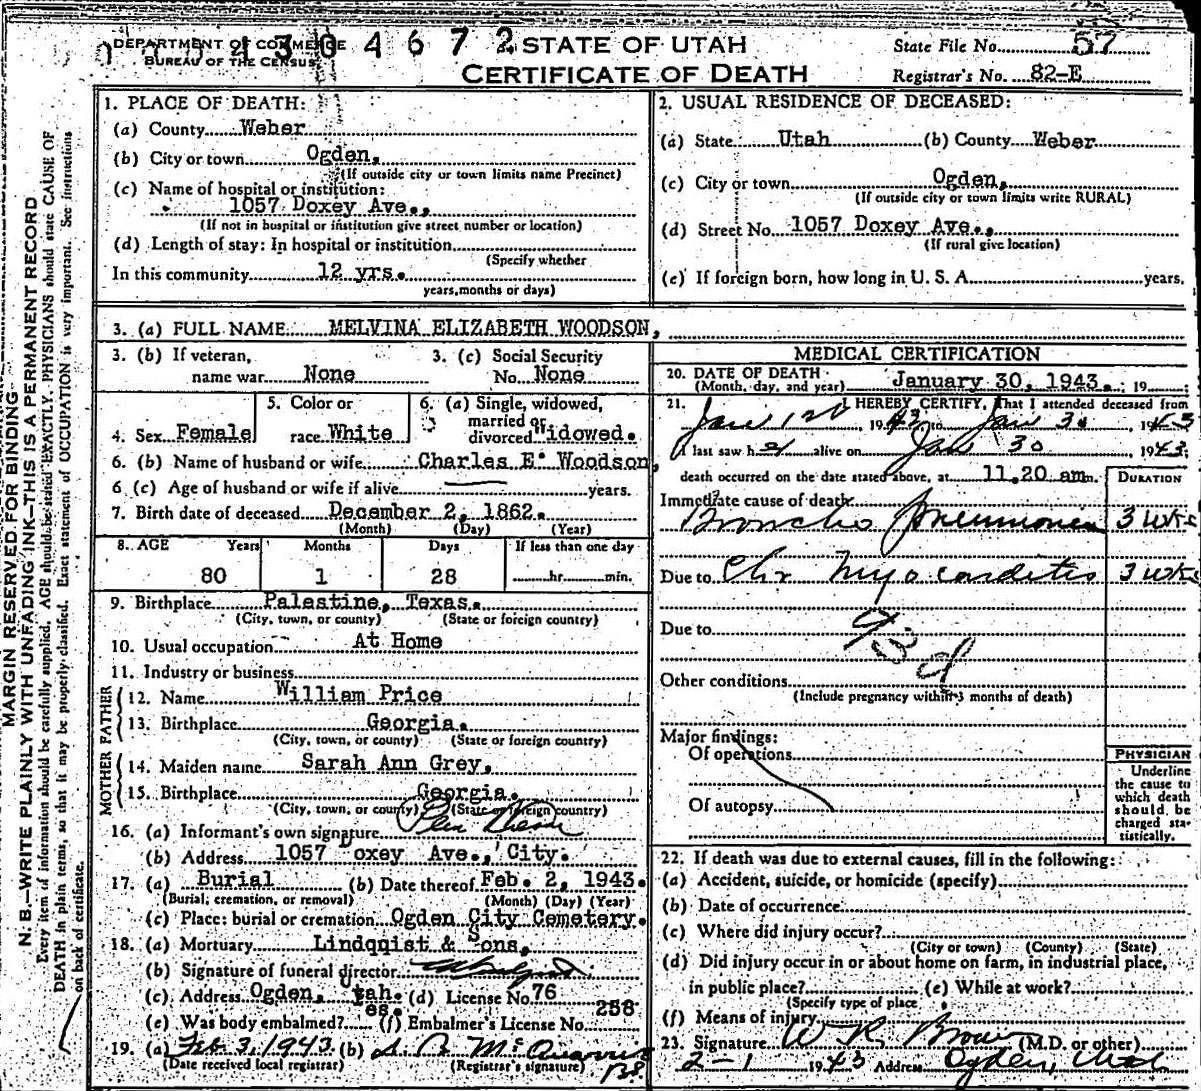 DEPARTMENT OF COMMERCE
BUREAU OF THE CENSUS
4304672
STATE OF UTAH
CERTIFICATE OF DEATH
State File No. 57
Registrar's No. 82-E
MARGIN RESERVED FOR BINDING
N. B.—WRITE PLAINLY WITH UNFADING INK—THIS IS A PERMANENT RECORD
Every item of information should be carefully supplied. AGE should be stated EXACTLY. PHYSICIANS should state CAUSE OF
DEATH in plain terms, so that it may be properly classified. Exact statement of OCCUPATION is very important. See instructions
on back of certificate.
1. PLACE OF DEATH:
(a) County Weber
(b) City or town Ogden,
(If outside city or town limits name Precinct)
(c) Name of hospital or institution:
1057 Doxey Ave.,
(If not in hospital or institution give street number or location)
(d) Length of stay: In hospital or institution
(Specify whether
In this community 12 yrs.
years, months or days)
2. USUAL RESIDENCE OF DECEASED:
(a) State Utah (b) County Weber
(c) City or town Ogden,
(If outside city or town limits write RURAL)
(d) Street No. 1057 Doxey Ave.,
(If rural give location)
(e) If foreign born, how long in U. S. A. years.
3. (a) FULL NAME MELVINA ELIZABETH WOODSON,
3. (b) If veteran,
name war None
3. (c) Social Security
No. None
4. Sex Female
5. Color or
race White
6. (a) Single, widowed,
married or
divorced Widowed.
6. (b) Name of husband or wife Charles E. Woodson,
6 (c) Age of husband or wife if alive years.
7. Birth date of deceased December 2, 1862.
(Month) (Day) (Year)
8. AGE Years Months Days If less than one day
80 1 28 hr. min.
9. Birthplace Palestine, Texas.
(City, town, or county) (State or foreign country)
10. Usual occupation At Home
11. Industry or business
FATHER
12. Name William Price
13. Birthplace Georgia.
(City, town, or county) (State or foreign country)
MOTHER
14. Maiden name Sarah Ann Grey,
15. Birthplace Georgia.
(City, town, or county) (State or foreign country)
16. (a) Informant's own signature
(b) Address 1057 Doxey Ave., City.
17. (a) Burial (b) Date thereof Feb. 2, 1943.
(Burial, cremation, or removal) (Month) (Day) (Year)
(c) Place: burial or cremation Ogden City Cemetery.
18. (a) Mortuary Lindqqist & Sons,
(b) Signature of funeral director
(c) Address Ogden, Utah. (d) License No. 76
(e) Was body embalmed? es. (f) Embalmer's License No. 258
19. (a) Feb 3, 1943 (b)
(Date received local registrar) (Registrar's signature)
MEDICAL CERTIFICATION
20. DATE OF DEATH
(Month, day, and year) January 30, 1943. ; 19
21. I HEREBY CERTIFY, That I attended deceased from
Jan 1, 1943, to Jan 30, 1943
I last saw h er alive on Jan 30 1943;
death occurred on the date stated above, at 11.20 am. m.
DURATION
Immediate cause of death
Broncho Pneumonia 3 wks
Due to Chr Myocarditis 3 wks
Due to
93d
Other conditions
(Include pregnancy within 3 months of death)
Major findings:
Of operations
Of autopsy
PHYSICIAN
Underline
the cause to
which death
should be
charged sta-
tistically.
22. If death was due to external causes, fill in the following:
(a) Accident, suicide, or homicide (specify)
(b) Date of occurrence
(c) Where did injury occur?
(City or town) (County) (State)
(d) Did injury occur in or about home on farm, in industrial place,
in public place? (e) While at work?
(Specify type of place
(f) Means of injury
23. Signature W R Brown (M.D. or other)
2-1 1943 Address Ogden, Utah